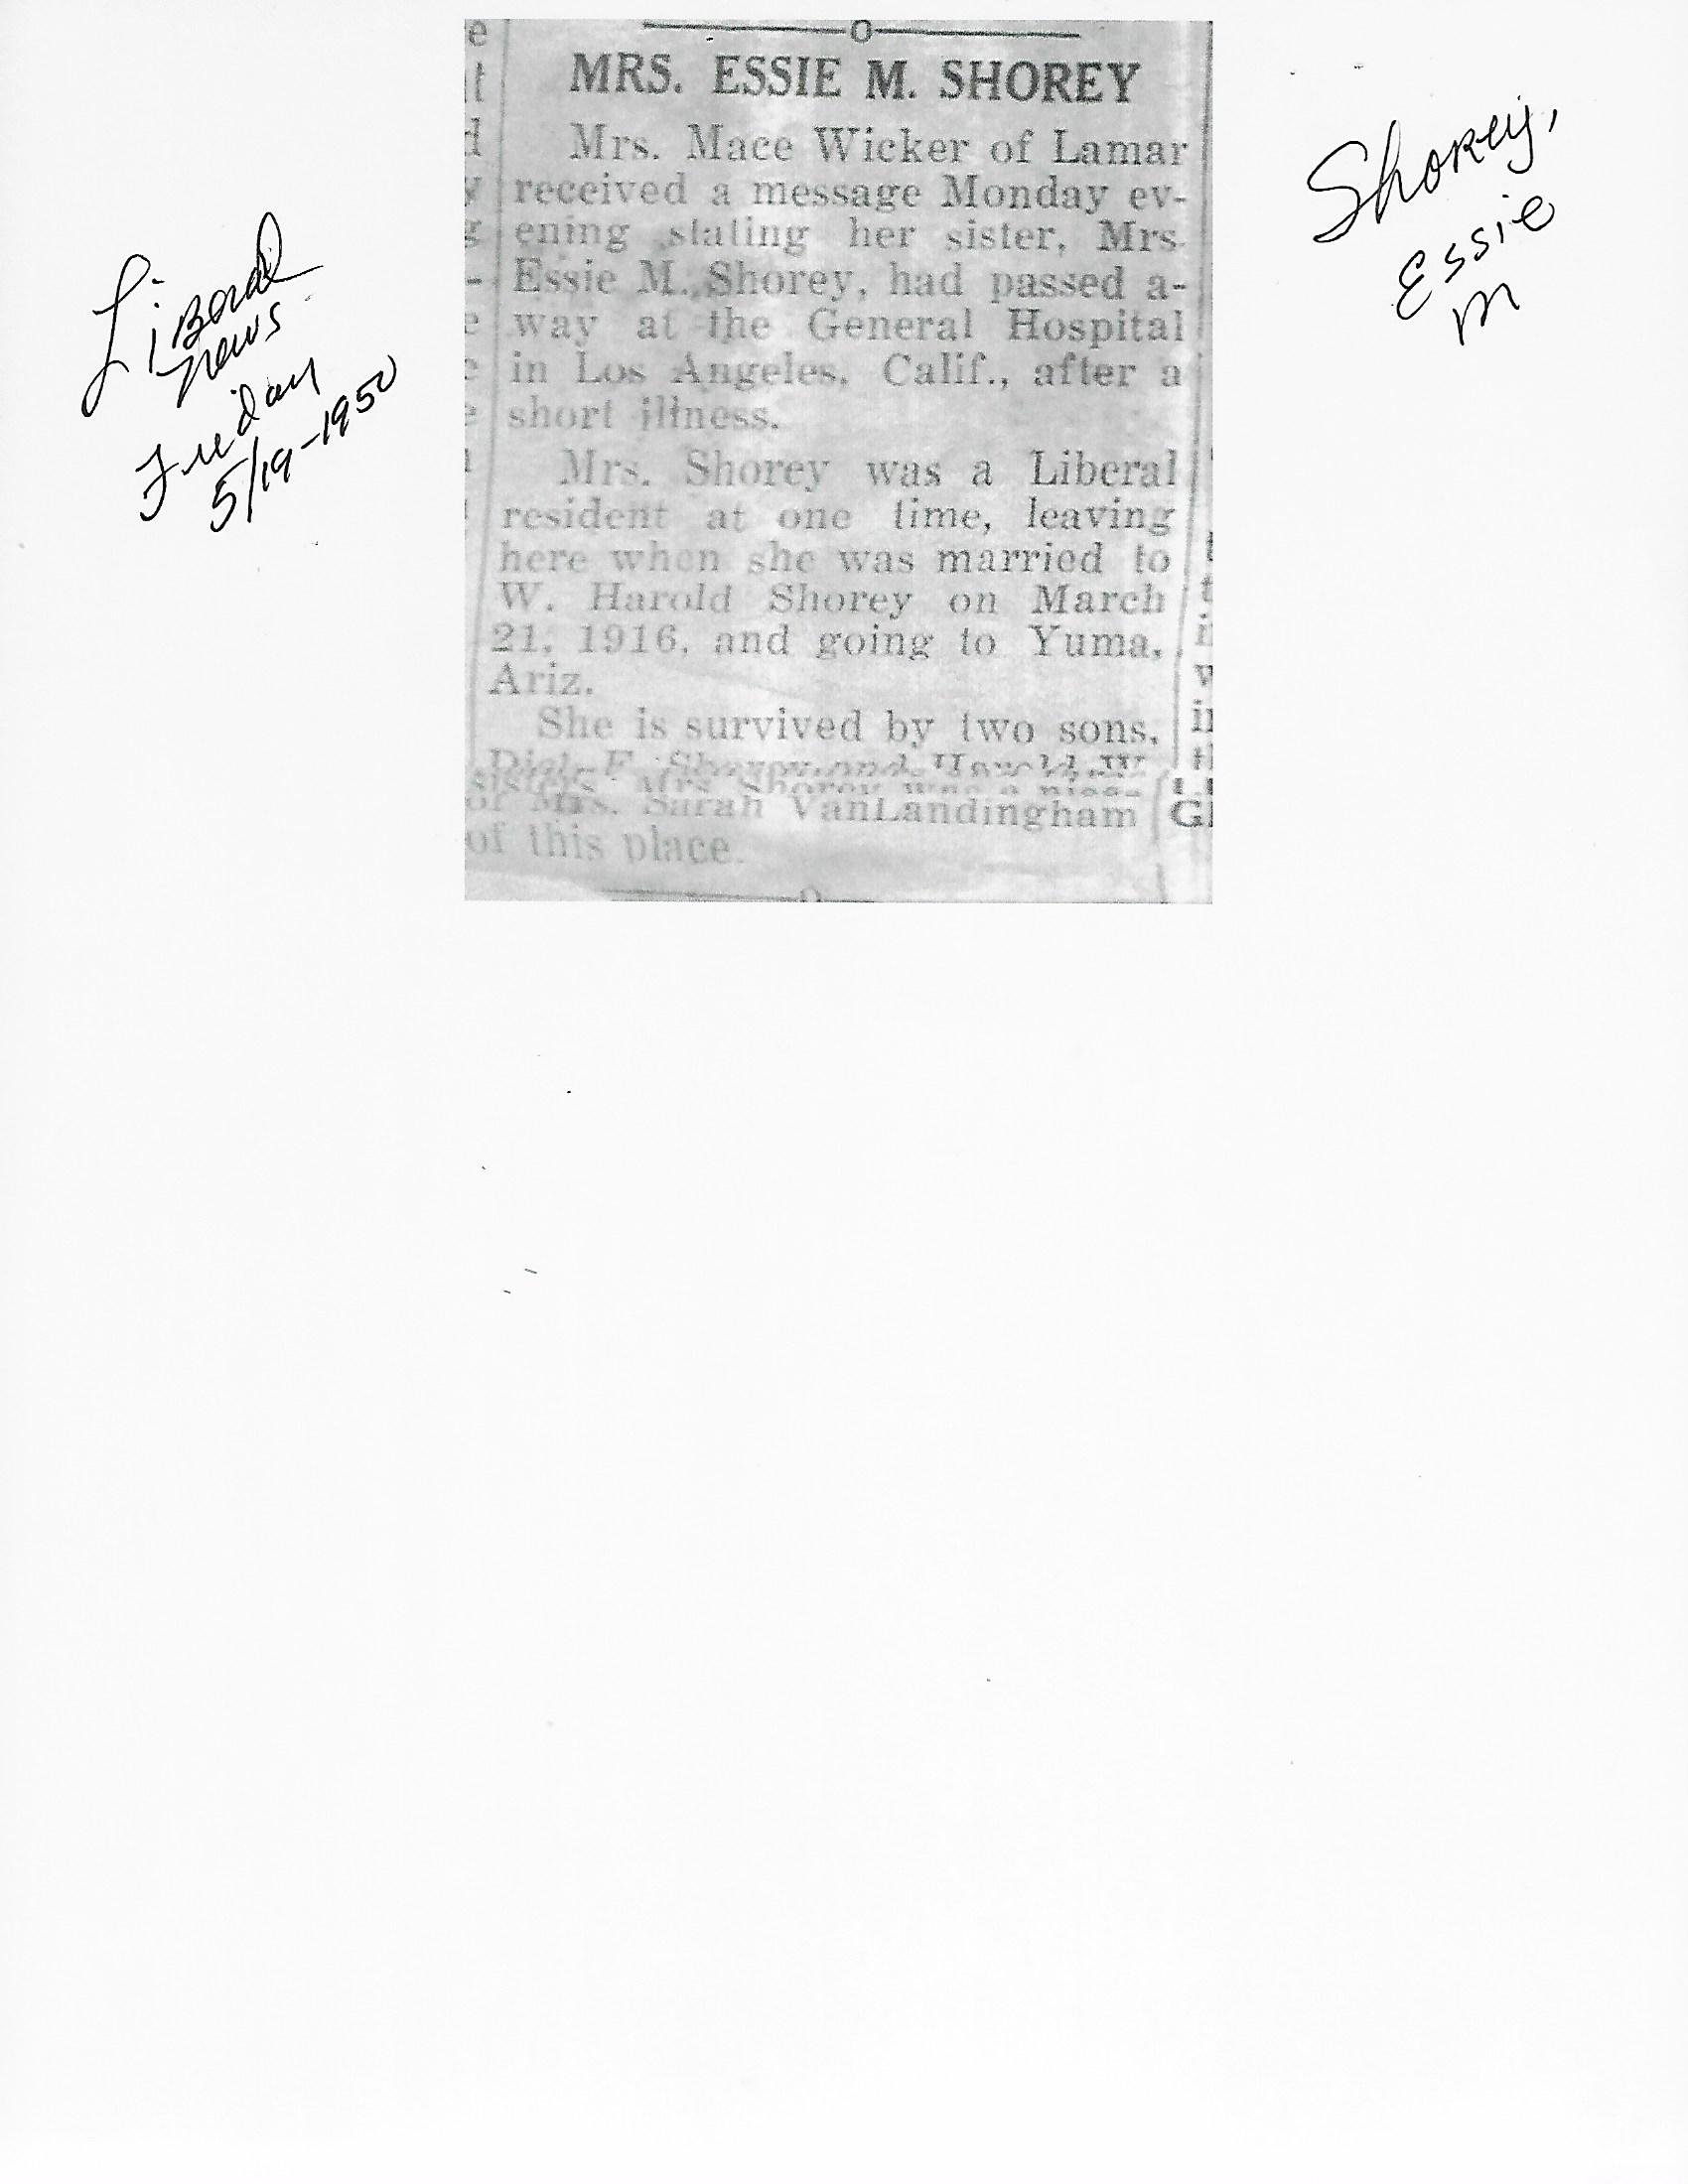 MRS. ESSIE M. SHOREY
Mrs. Mace Wicker of Lamar
received a message Monday ev-
ening stating her sister, Mrs.
Essie M. Shorey, had passed a-
way at the General Hospital
in Los Angeles, Calif., after a
short illness.
Mrs. Shorey was a Liberal
resident at one time, leaving
here when she was married to
W. Harold Shorey on March
21, 1916, and going to Yuma,
Ariz.
She is survived by two sons,
Dick F. Shorey and Harold W.
sisters. Mrs. Shorey was a niece
of Mrs. Sarah VanLandingham
of this place.
Liberal
News
Friday
5/19-1950
Shorey,
Essie
M